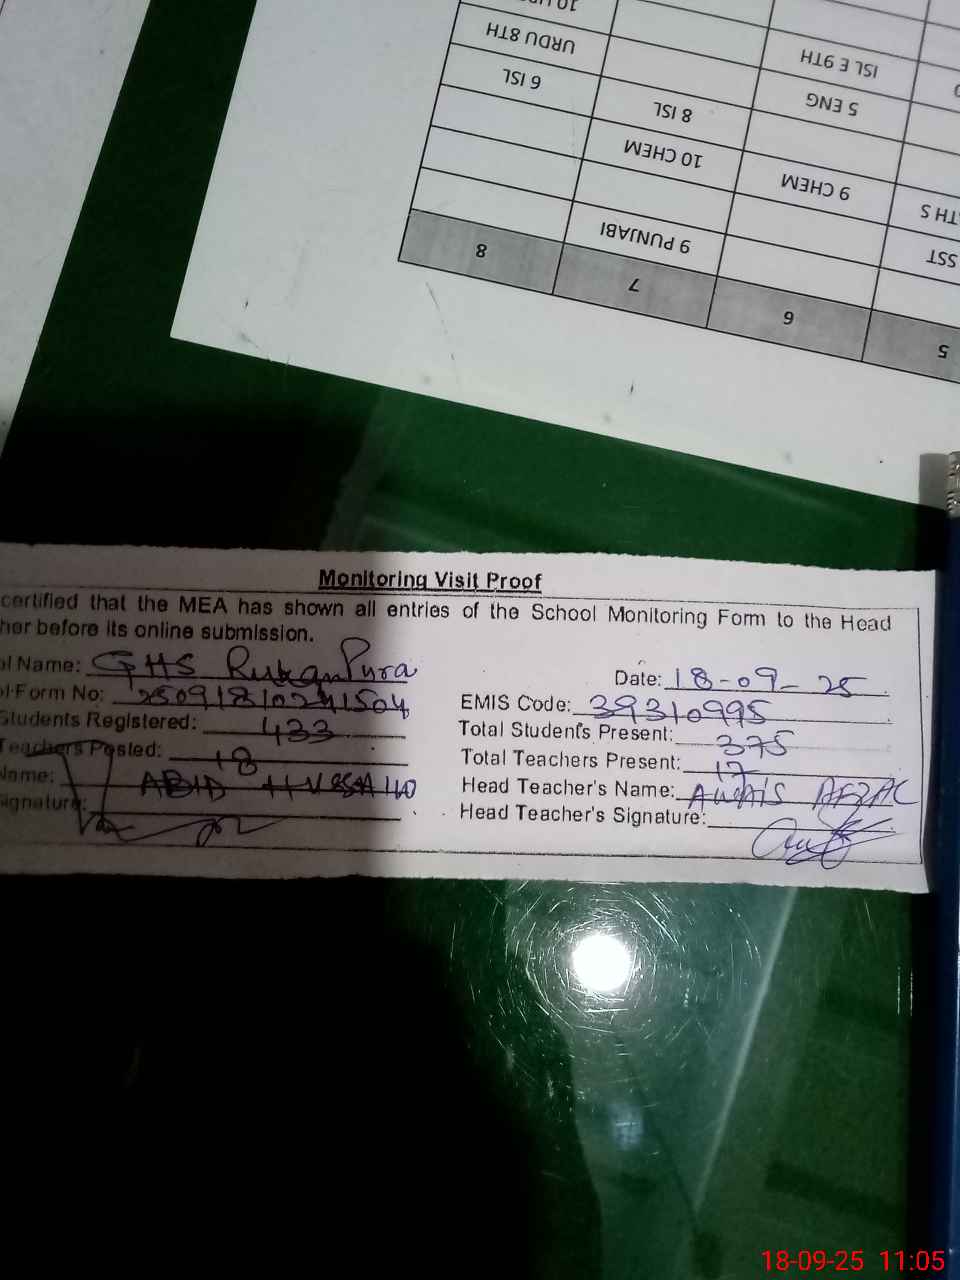 10
URDU 8TH
ISL E 9TH
6 ISL
8 ISL
5 ENG
10 CHEM
9 CHEM
TH S
9 PUNJABI
SST
8
7
6
5
Monitoring Visit Proof
certified that the MEA has shown all entries of the School Monitoring Form to the Head
her before its online submission.
ol Name: GHS Rukan Pura
Date: 18-09-25
ol Form No:
EMIS Code: 39310995
Students Registered: 433
Total Students Present: 375
Teachers Posted: 18
Total Teachers Present: 17
Name: ABID HUSSAIN
Head Teacher's Name: AWAIS AFZAL
Signature:
Head Teacher's Signature:
18-09-25 11:05